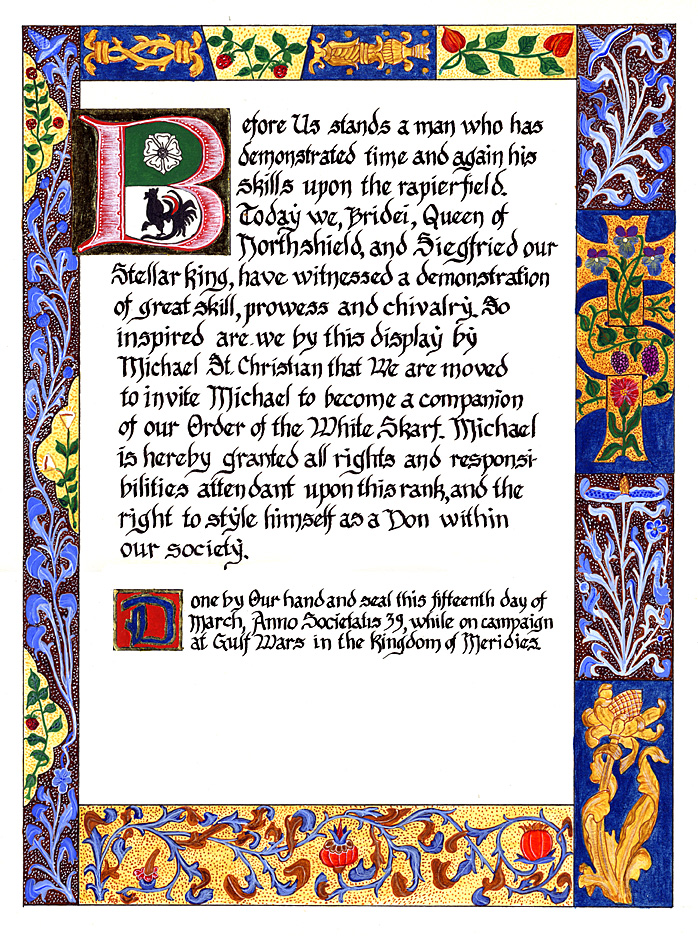 Before Us stands a man who has
demonstrated time and again his
skills upon the rapier field.
Today we, Bridei, Queen of
Northshield, and Siegfried our
Stellar King, have witnessed a demonstration
of great skill, prowess and chivalry. So
inspired are we by this display by
Michael St. Christian that We are moved
to invite Michael to become a companion
of our Order of the White Skarf. Michael
is hereby granted all rights and responsi-
bilities attendant upon this rank, and the
right to style himself as a Don within
our society.
Done by Our hand and seal this fifteenth day of
March, Anno Societatis 39, while on campaign
at Gulf Wars in the Kingdom of Meridies.